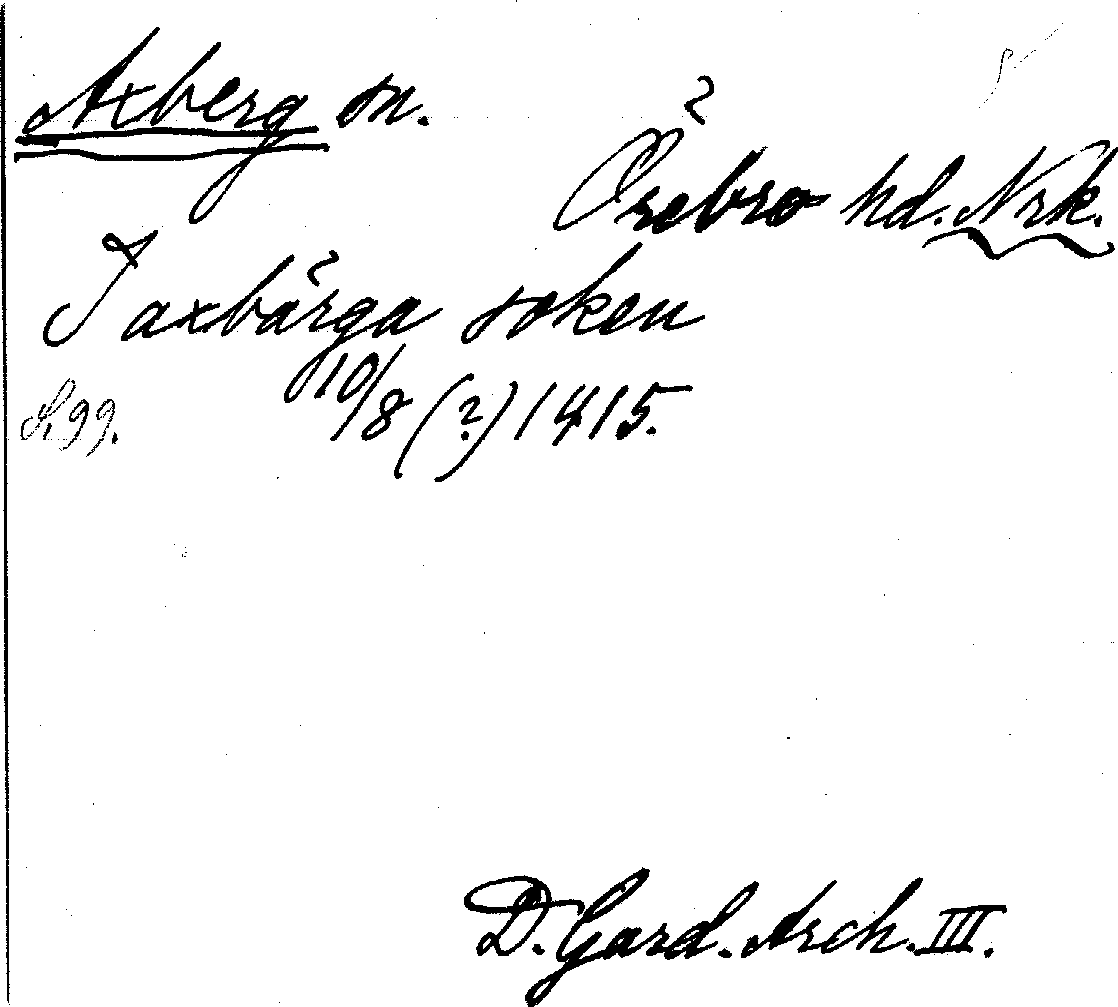 Axberg sn.
Örebro hd. Nrk.
J axbärga soken
S. 99. 10/8 (?) 1415.
D. Gard. Arch. III.